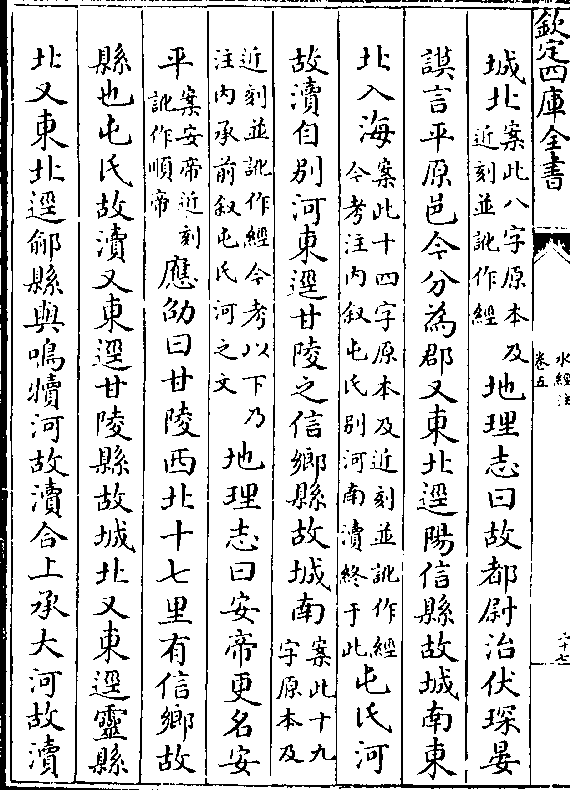 欽定四庫全書
水經注
卷五
六十七
城北案此八字原本及近刻並訛作經地理志曰故都尉治伏琛晏
謨言平原邑今分為郡又東北逕陽信縣故城南東
北入海案此十四字原本及近刻並訛作經今考注内叙屯氏别河南瀆終于此屯氏河
故瀆自别河東逕甘陵之信鄉縣故城南案此十九字原本及
近刻並訛作經今考以下乃注内承前叙屯氏河之文地理志曰安帝更名安
平案安帝近刻訛作順帝應劭曰甘陵西北十七里有信鄉故
縣也屯氏故瀆又東逕甘陵縣故城北又東逕靈縣
北又東北逕鄃縣與鳴犢河故瀆合上承大河故瀆